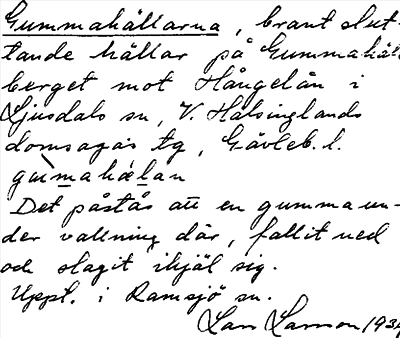 Gummahällarna, brant slut-
tande hällar på Gummahäll-
berget mot Hångelån i
Ljusdals sn, V. Hälsinglands
domsagas tg, Gävleb. l.
Det påstås att en gumma un-
der vallning där, fallit ned
och slagit ihjäl sig.
Uppt. i Ramsjö sn.
Lars Larsson